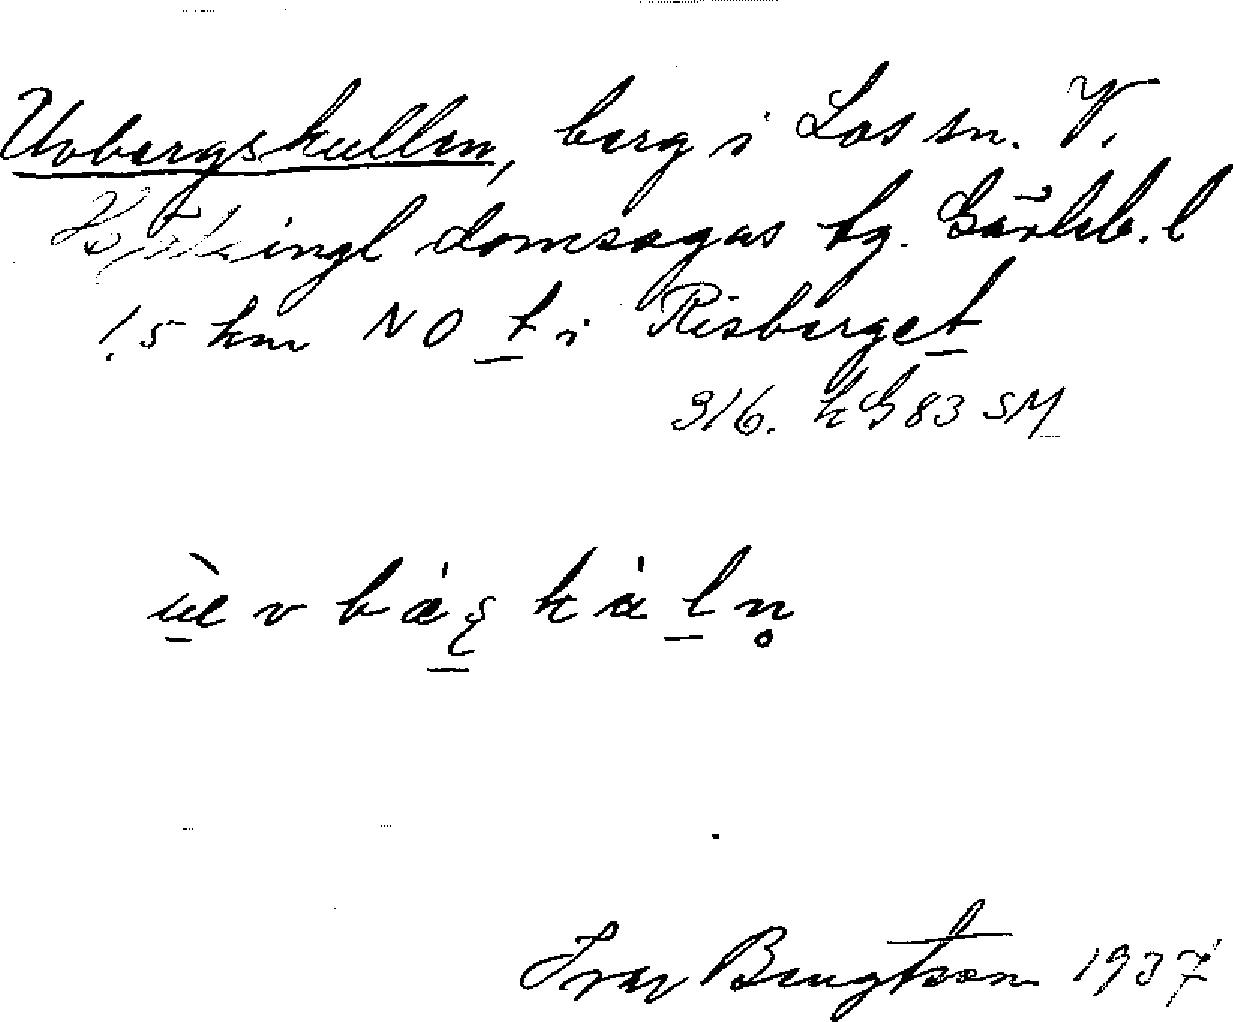 Uvbergskullen, berg i Los sn. V.
Hälsingl domsagas tg. Gävleb. l
1.5 km NO t i Risberget
316. h G 83 SM
Ivar Bengtsson 1937